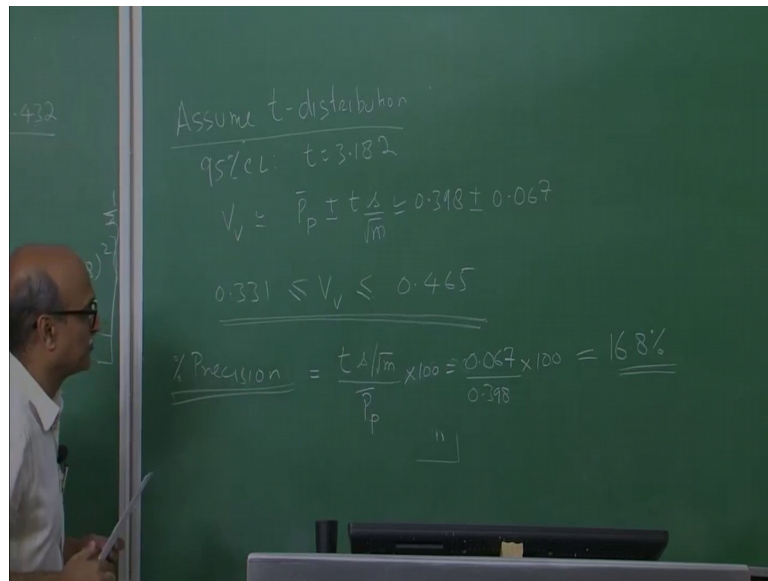 .432
Assume t-distribution
95% CL: t=3.182
V_v ≃ P̄_p ± t s/√m ≃ 0.398 ± 0.067
0.331 ≤ V_v ≤ 0.465
% Precision = (t s/√m)/P̄_p ×100 = 0.067/0.398 ×100 = 16.8%